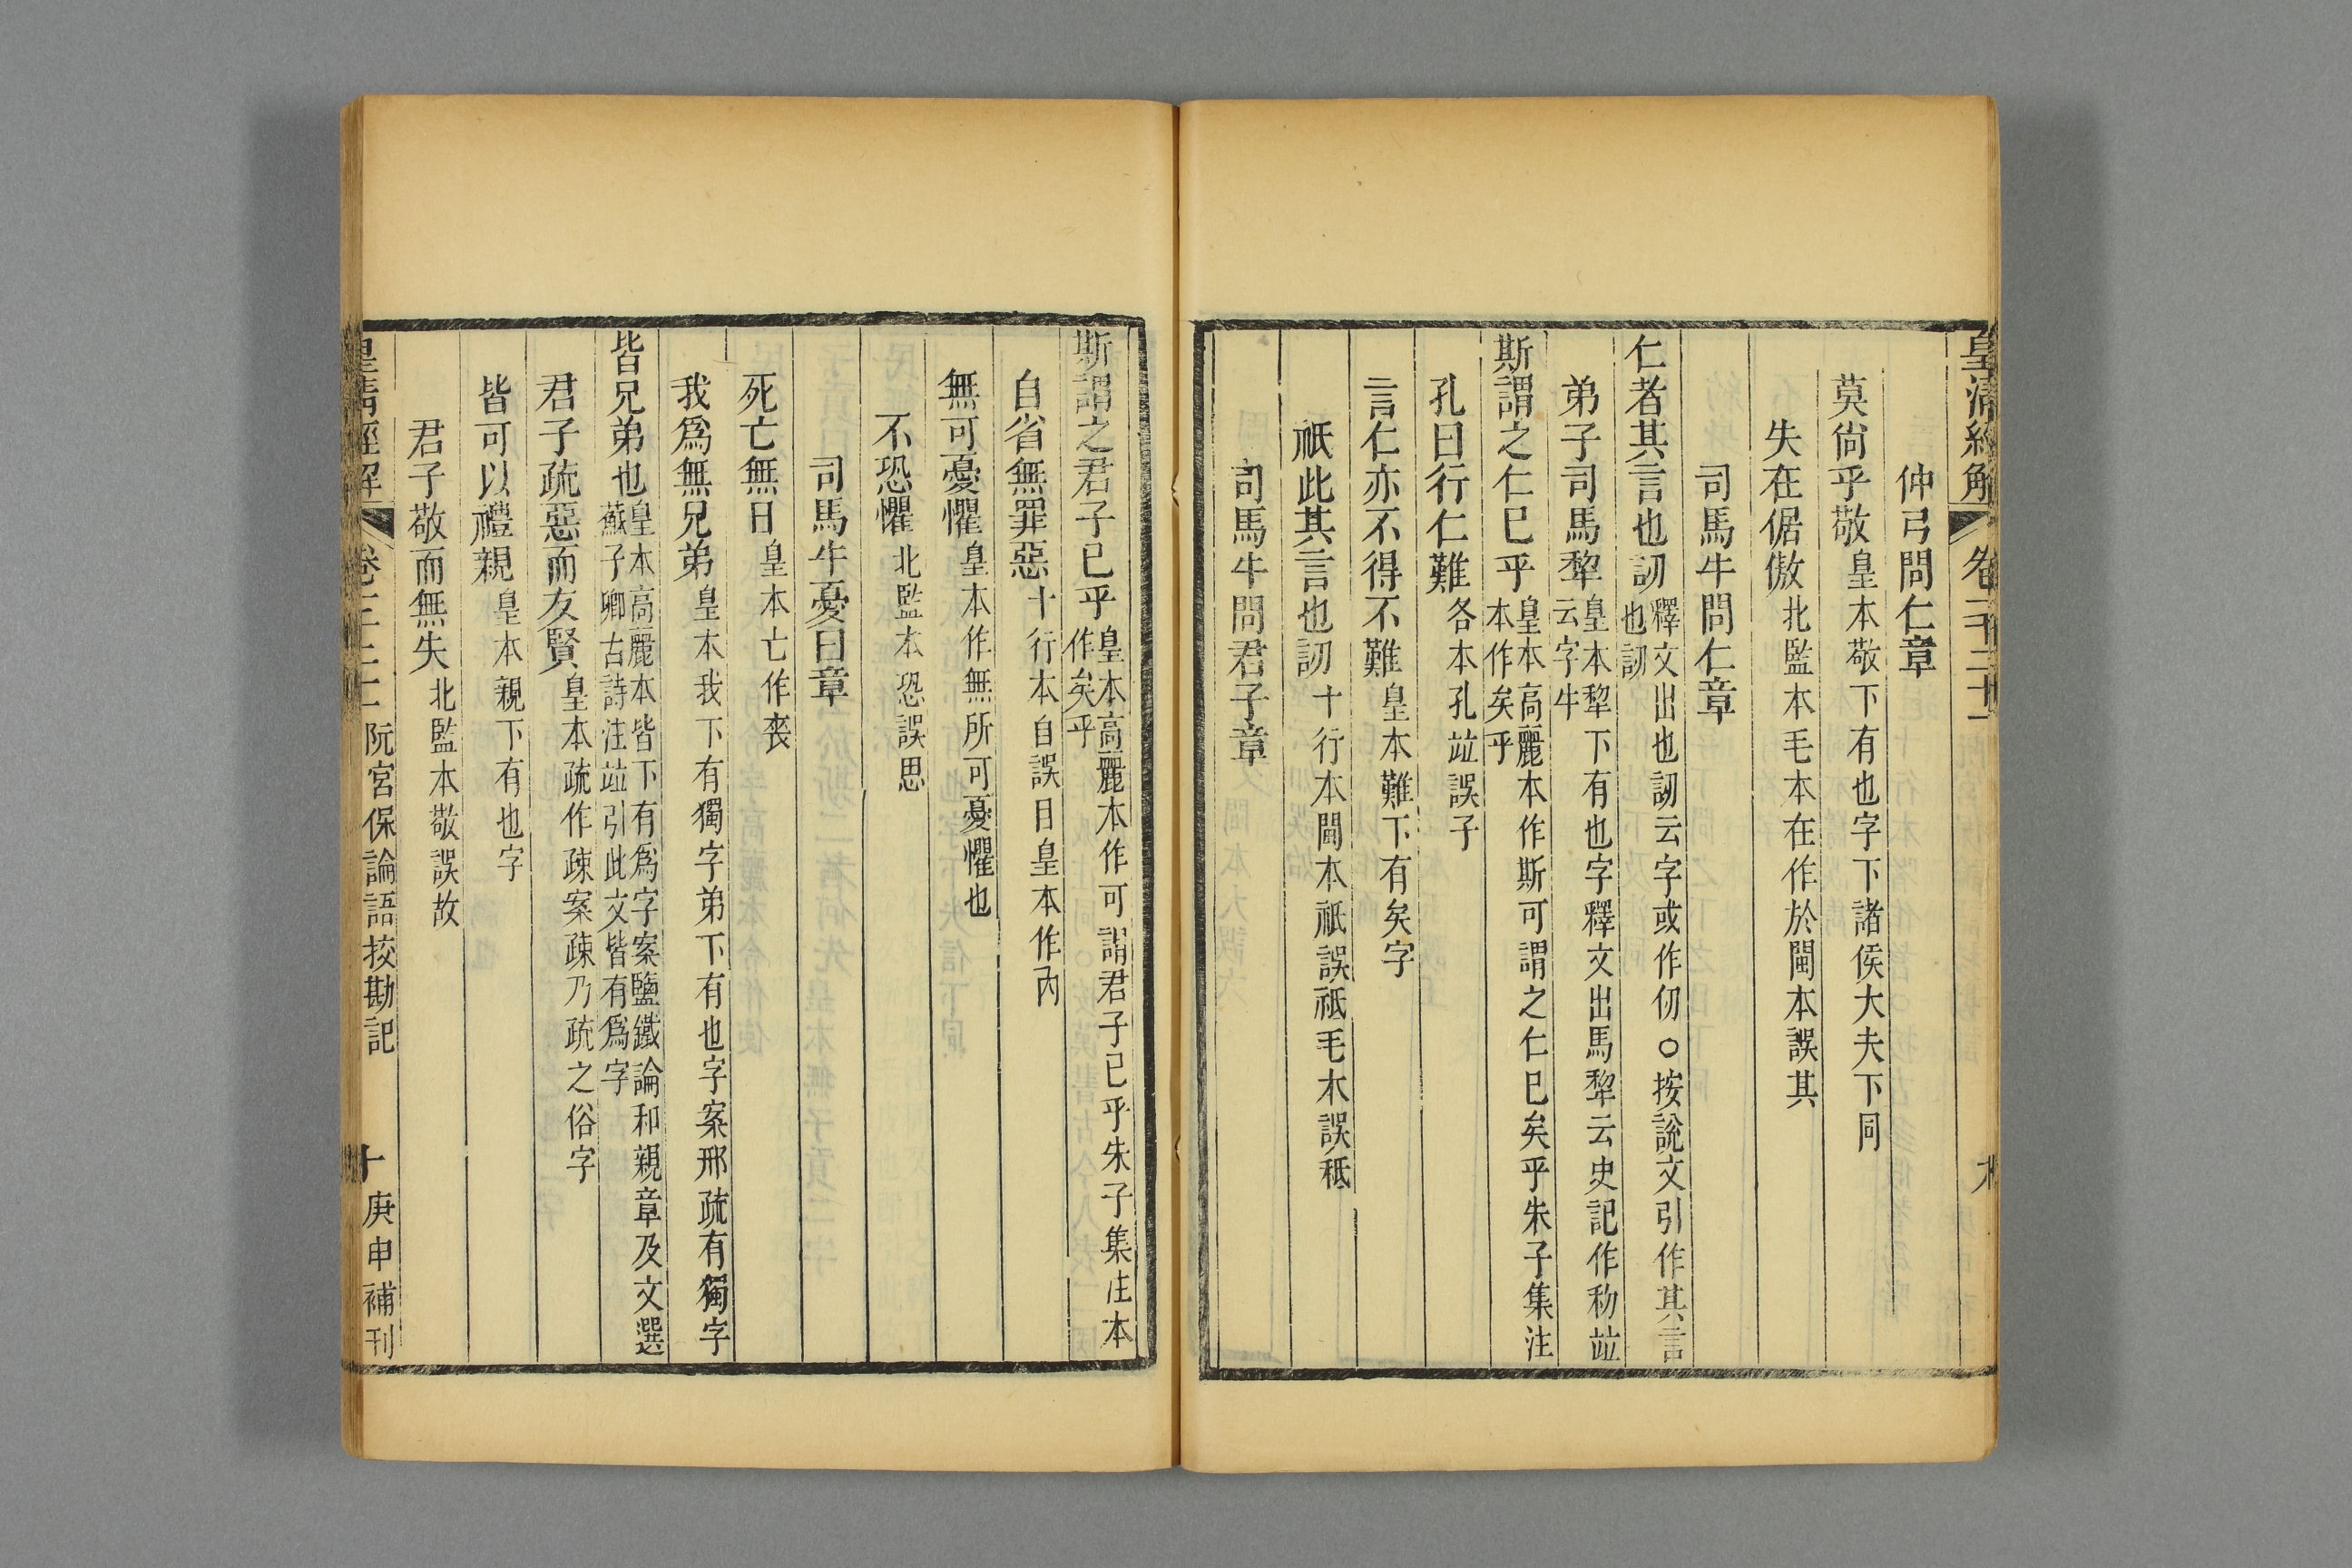 皇清經解 卷一千二十一
仲弓問仁章
莫尚乎敬皇本敬下有也字下諸侯大夫下同
失在倨傲北監本毛本在作於閩本誤其
司馬牛問仁章
仁者其言也訒釋文出也訒云字或作仞○按說文引作其言也訒
弟子司馬犂皇本犂下有也字釋文出馬犂云史記作秎竝云字牛
斯謂之仁已乎皇本高麗本作斯可謂之仁已矣乎朱子集注本作矣乎
孔曰行仁難各本孔竝誤子
言仁亦不得不難皇本難下有矣字
祇此其言也訒十行本閩本祇誤祗毛本誤秪
司馬牛問君子章
斯謂之君子已乎皇本高麗本作可謂君子已乎朱子集注本作矣乎
自省無罪惡十行本自誤目皇本作內
無可憂懼皇本作無所可憂懼也
不恐懼北監本恐誤思
司馬牛憂曰章
死亡無日皇本亡作喪
我爲無兄弟皇本我下有獨字弟下有也字案邢疏有獨字
皆兄弟也皇本高麗本皆下有爲字案鹽鐵論和親章及文選蘇子卿古詩注竝引此文皆有爲字
君子疏惡而友賢皇本疏作疎案疎乃疏之俗字
皆可以禮親皇本親下有也字
君子敬而無失北監本敬誤故
皇清經解 卷一千二十一 阮宮保論語挍勘記 十 庚申補刊